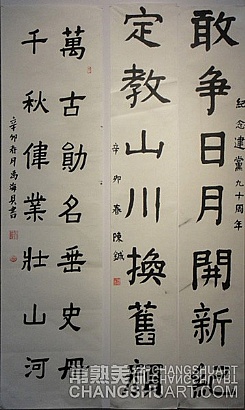 紀念建黨九十周年
敢争日月開新
定教山川換舊
辛卯春陳
萬古勛名垂史冊
千秋偉業壯山河
辛卯春月海書
常熟美術
CHANGSHUART